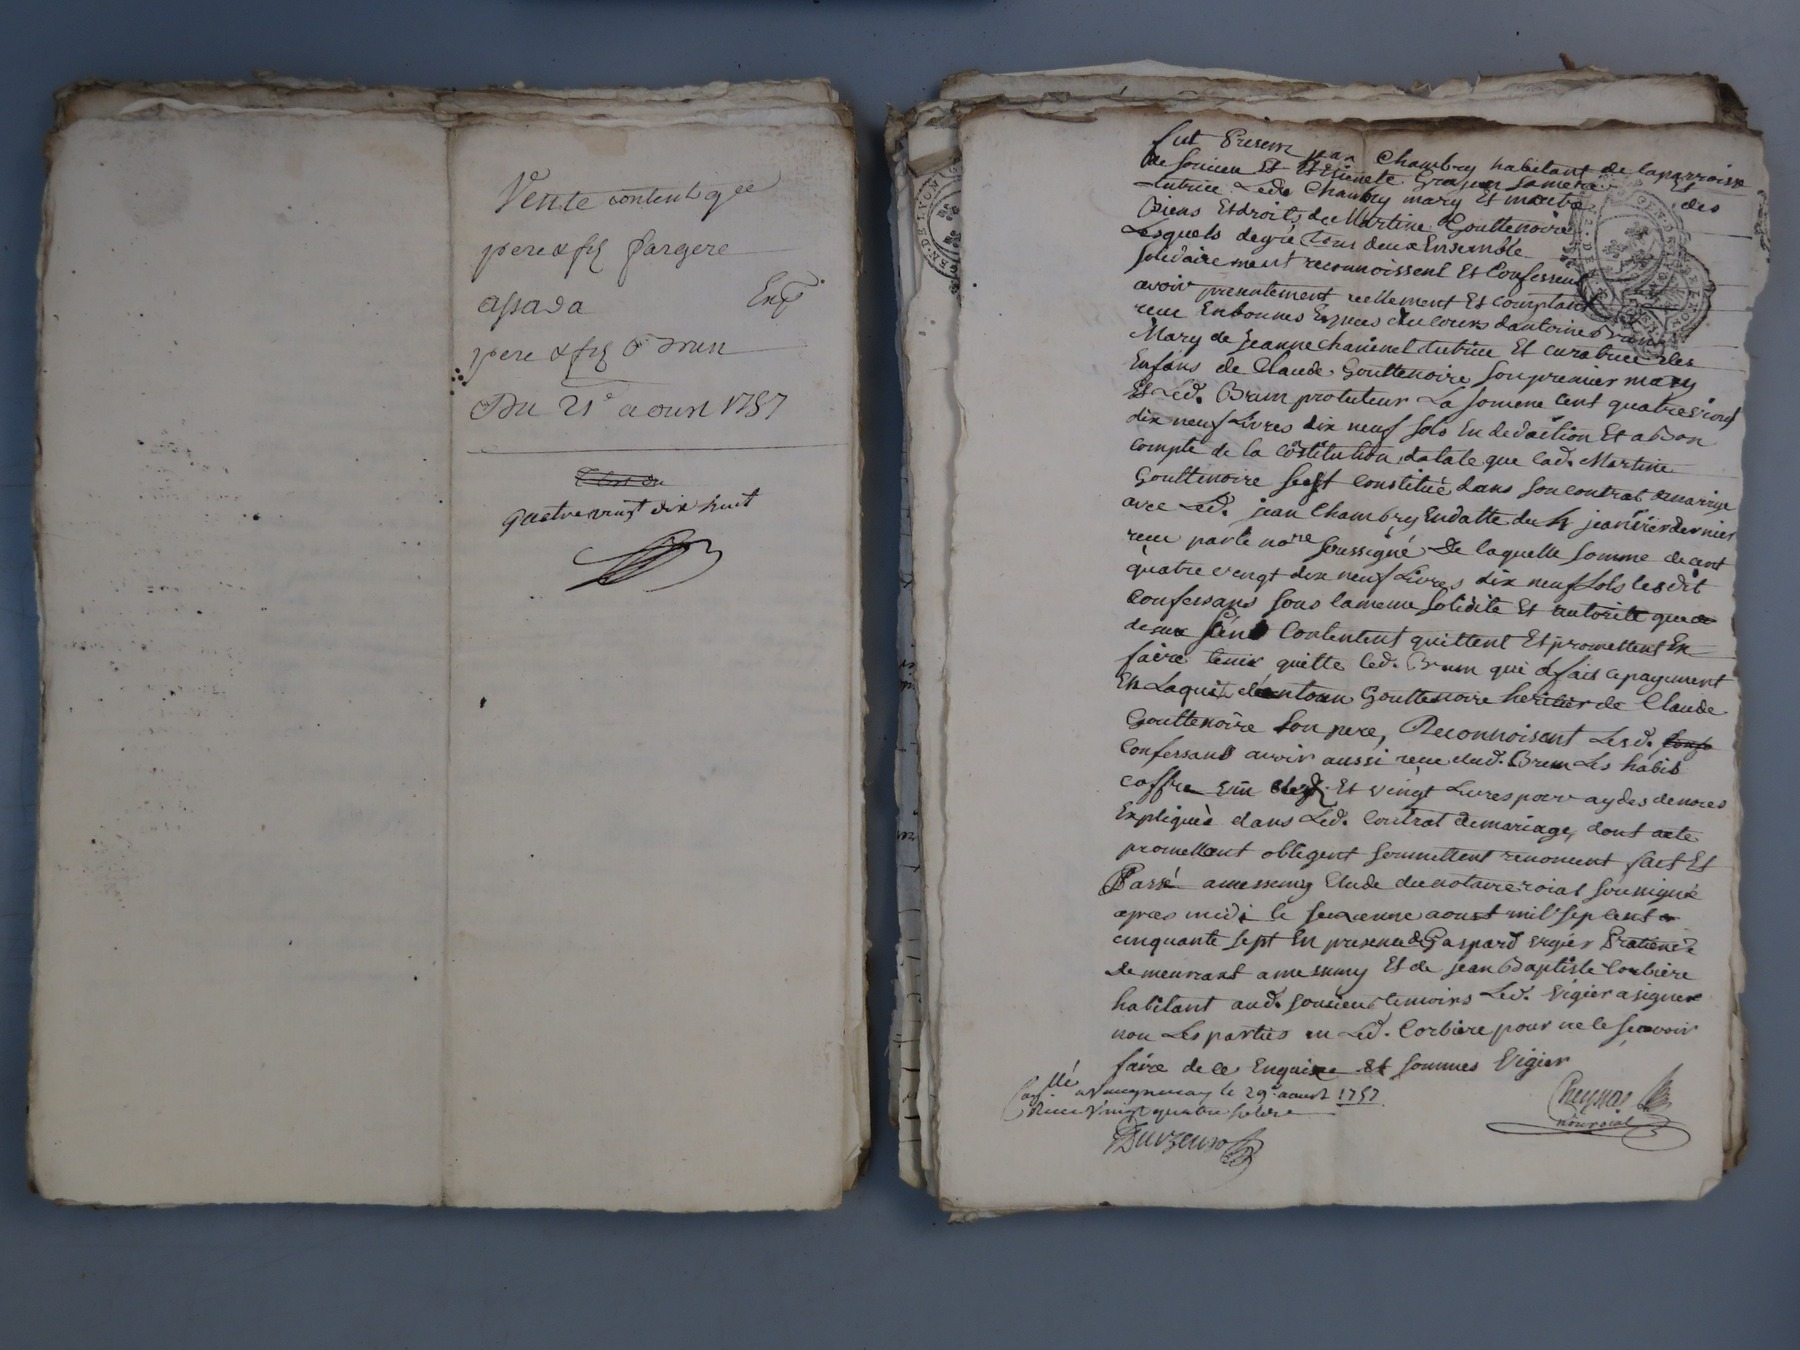 Vente contenant gée
pere & fils fargere
assada Exp.
pere & fils o drun
Du 21e aoust 1757
quatre vingt dix huit
fut Present jean Chambry habitant de la parroisse
de sonieu Et Etiennete Grajon sa mere Et
tutrice Led. Chambry mary Et maitre des
Biens Et droits de Martine Gouttenoire
Lesquels de gré tous deux Ensemble
solidairement reconnoissent Et Confessent
avoir presentement reellement Et comptant
receu En bonnes Especes du cours d'antoine Brun
Mary de jeanne Chanenel tutrice Et curatrice des
Enfans de Claude Gouttenoire son premier mary
Et Led. Brun protuteur La somme cent quatre vingt
dix neuf Livres dix neuf sols En deduction Et a bon
compte de la Constitution dotale que lad. Martine
Gouttenoire s'est constitué dans son contrat de mariage
avec Led. jean Chambry En datte du 4 jeanvier dernier
receu par le nore soussigné De laquelle somme de cent
quatre vengt dix neuf Livres dix neuf sols lesdit
Confessans sous la meme solidité Et autorité que
dessus s'en Contentent quittent Et promettent En
faire tenir quitte led. Brun qui a fait ce payement
En Laquit d'antoine Gouttenoire heritier de Claude
Gouttenoire son pere, Reconnoisent Lesd.
Confessans avoir aussi receu dud. Brun Les habis
coffre Et vingt Livres pour aydes de noces
Expliqués dans Led. Contrat de mariage, dont acte
promettant obligent soumettent renoncent fait Et
Passé a messemy Etude du notaire roial soussigné
apres midi le seizieme aoust mil sept cent
cinquante sept En presence de Gaspard vigier Praticien
Demeurant a messemy Et de jean Baptiste Corbiere
habitant aud. sonieu temoins Led. Vigier a signé
non Les parties ni Led. Corbiere pour ne le scavoir
faire de ce Enquis Et sommes Vigier
Cheynas
nore roial
Cont.llé a le 29e aoust 1757
Receu vingt quatre sols